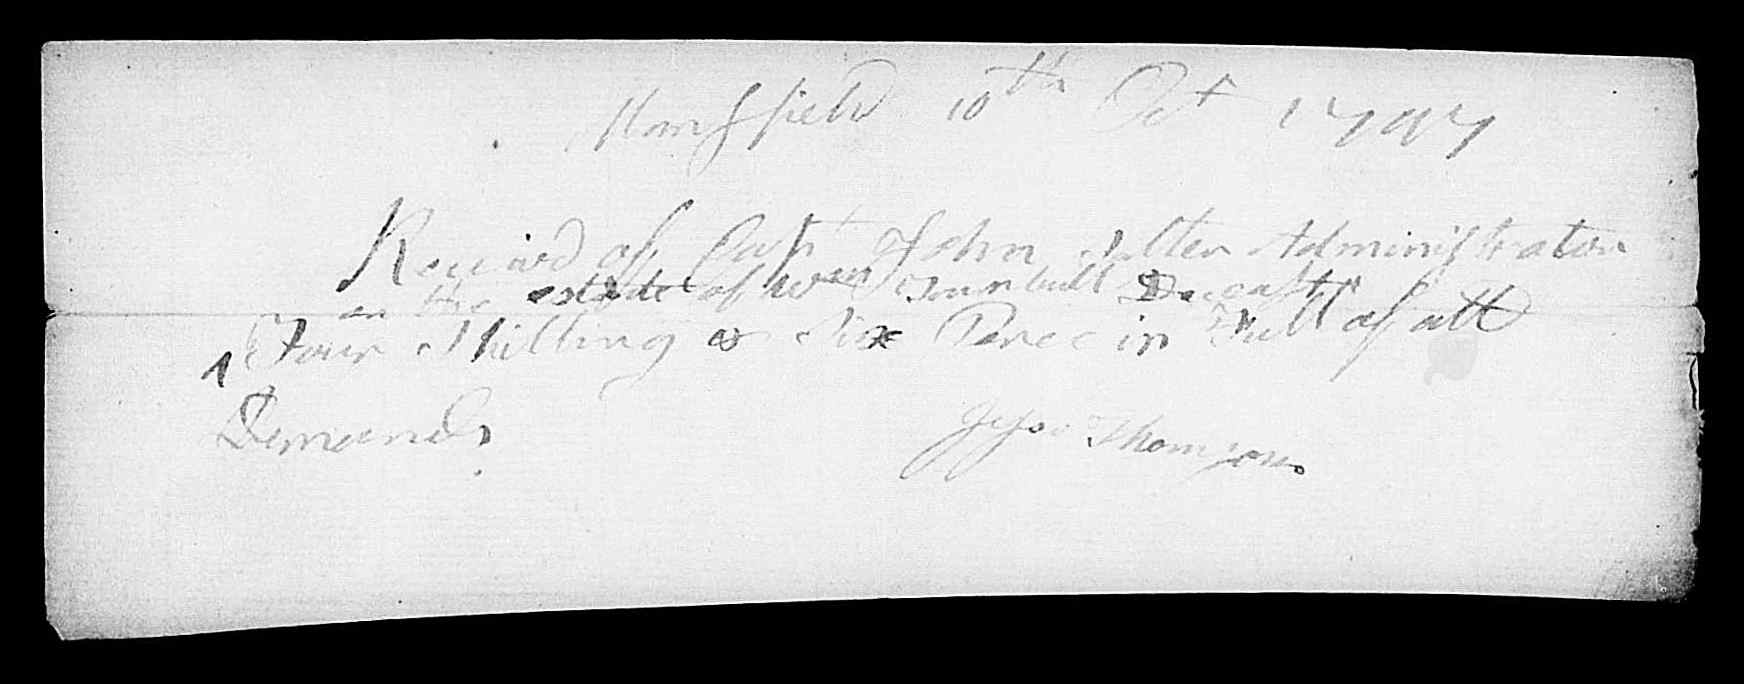 Mansfield 10th Oct 1797
Received of Capt John Salter Administrator
on the estate of Wm Turnbull Deceast
^ Four Shilling & Six Pence in Full of all
Demands
Thomson